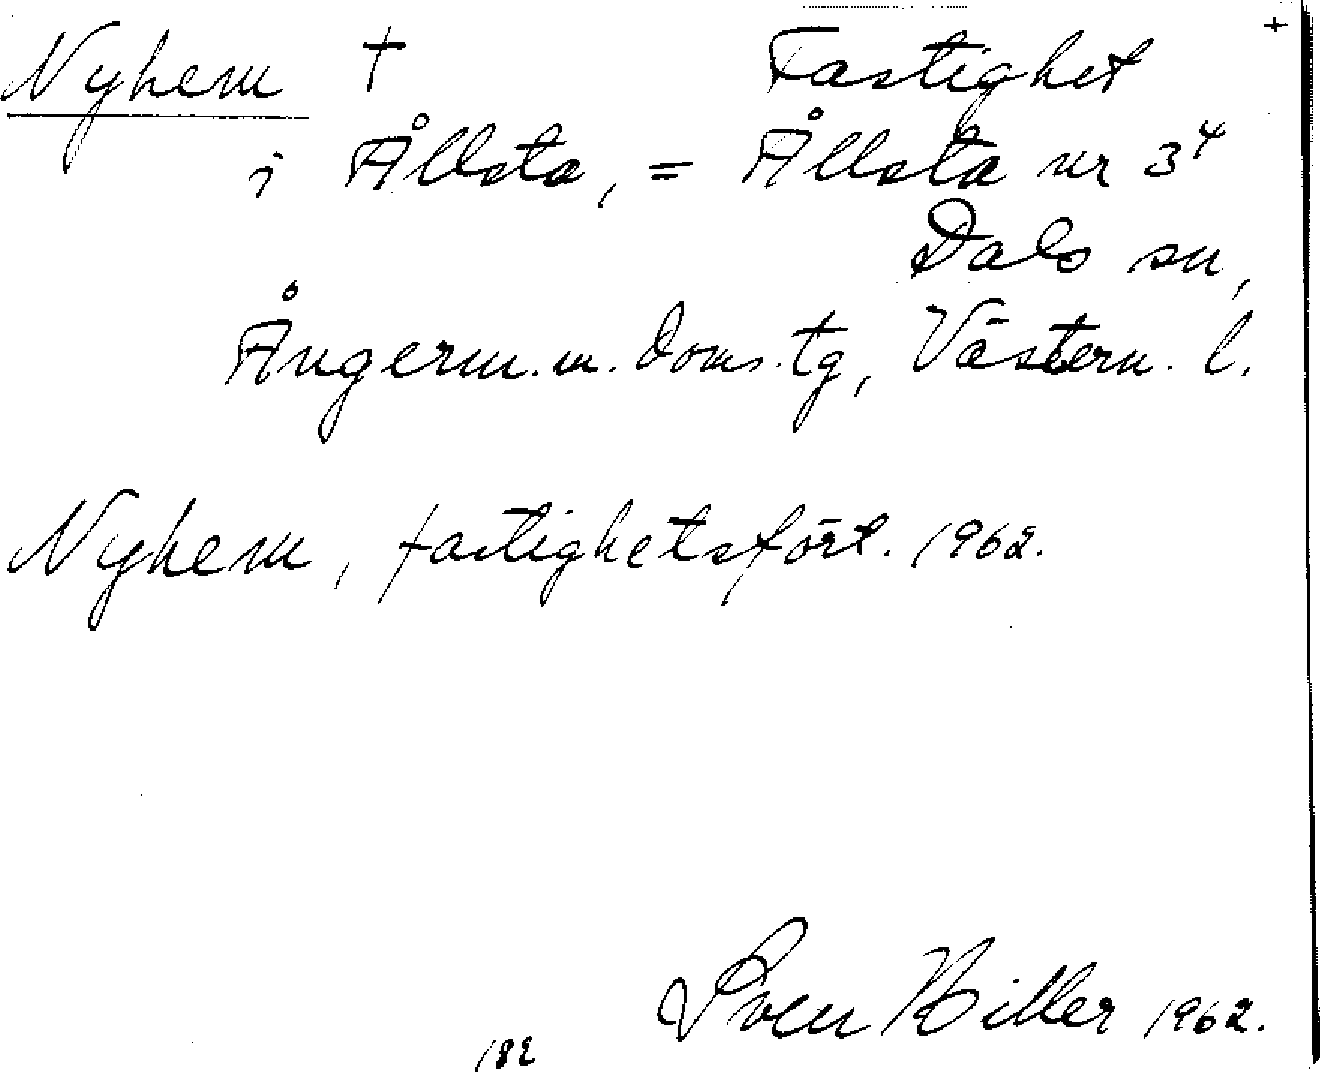 Nyhem † Fastighet +
i Ållsta, = Ållsta nr 3⁴
Dals sn,
Ångerm. m. doms. tg, Västern. l.
Nyhem, fastighetsfört. 1962.
Sven Hiller 1962.
182